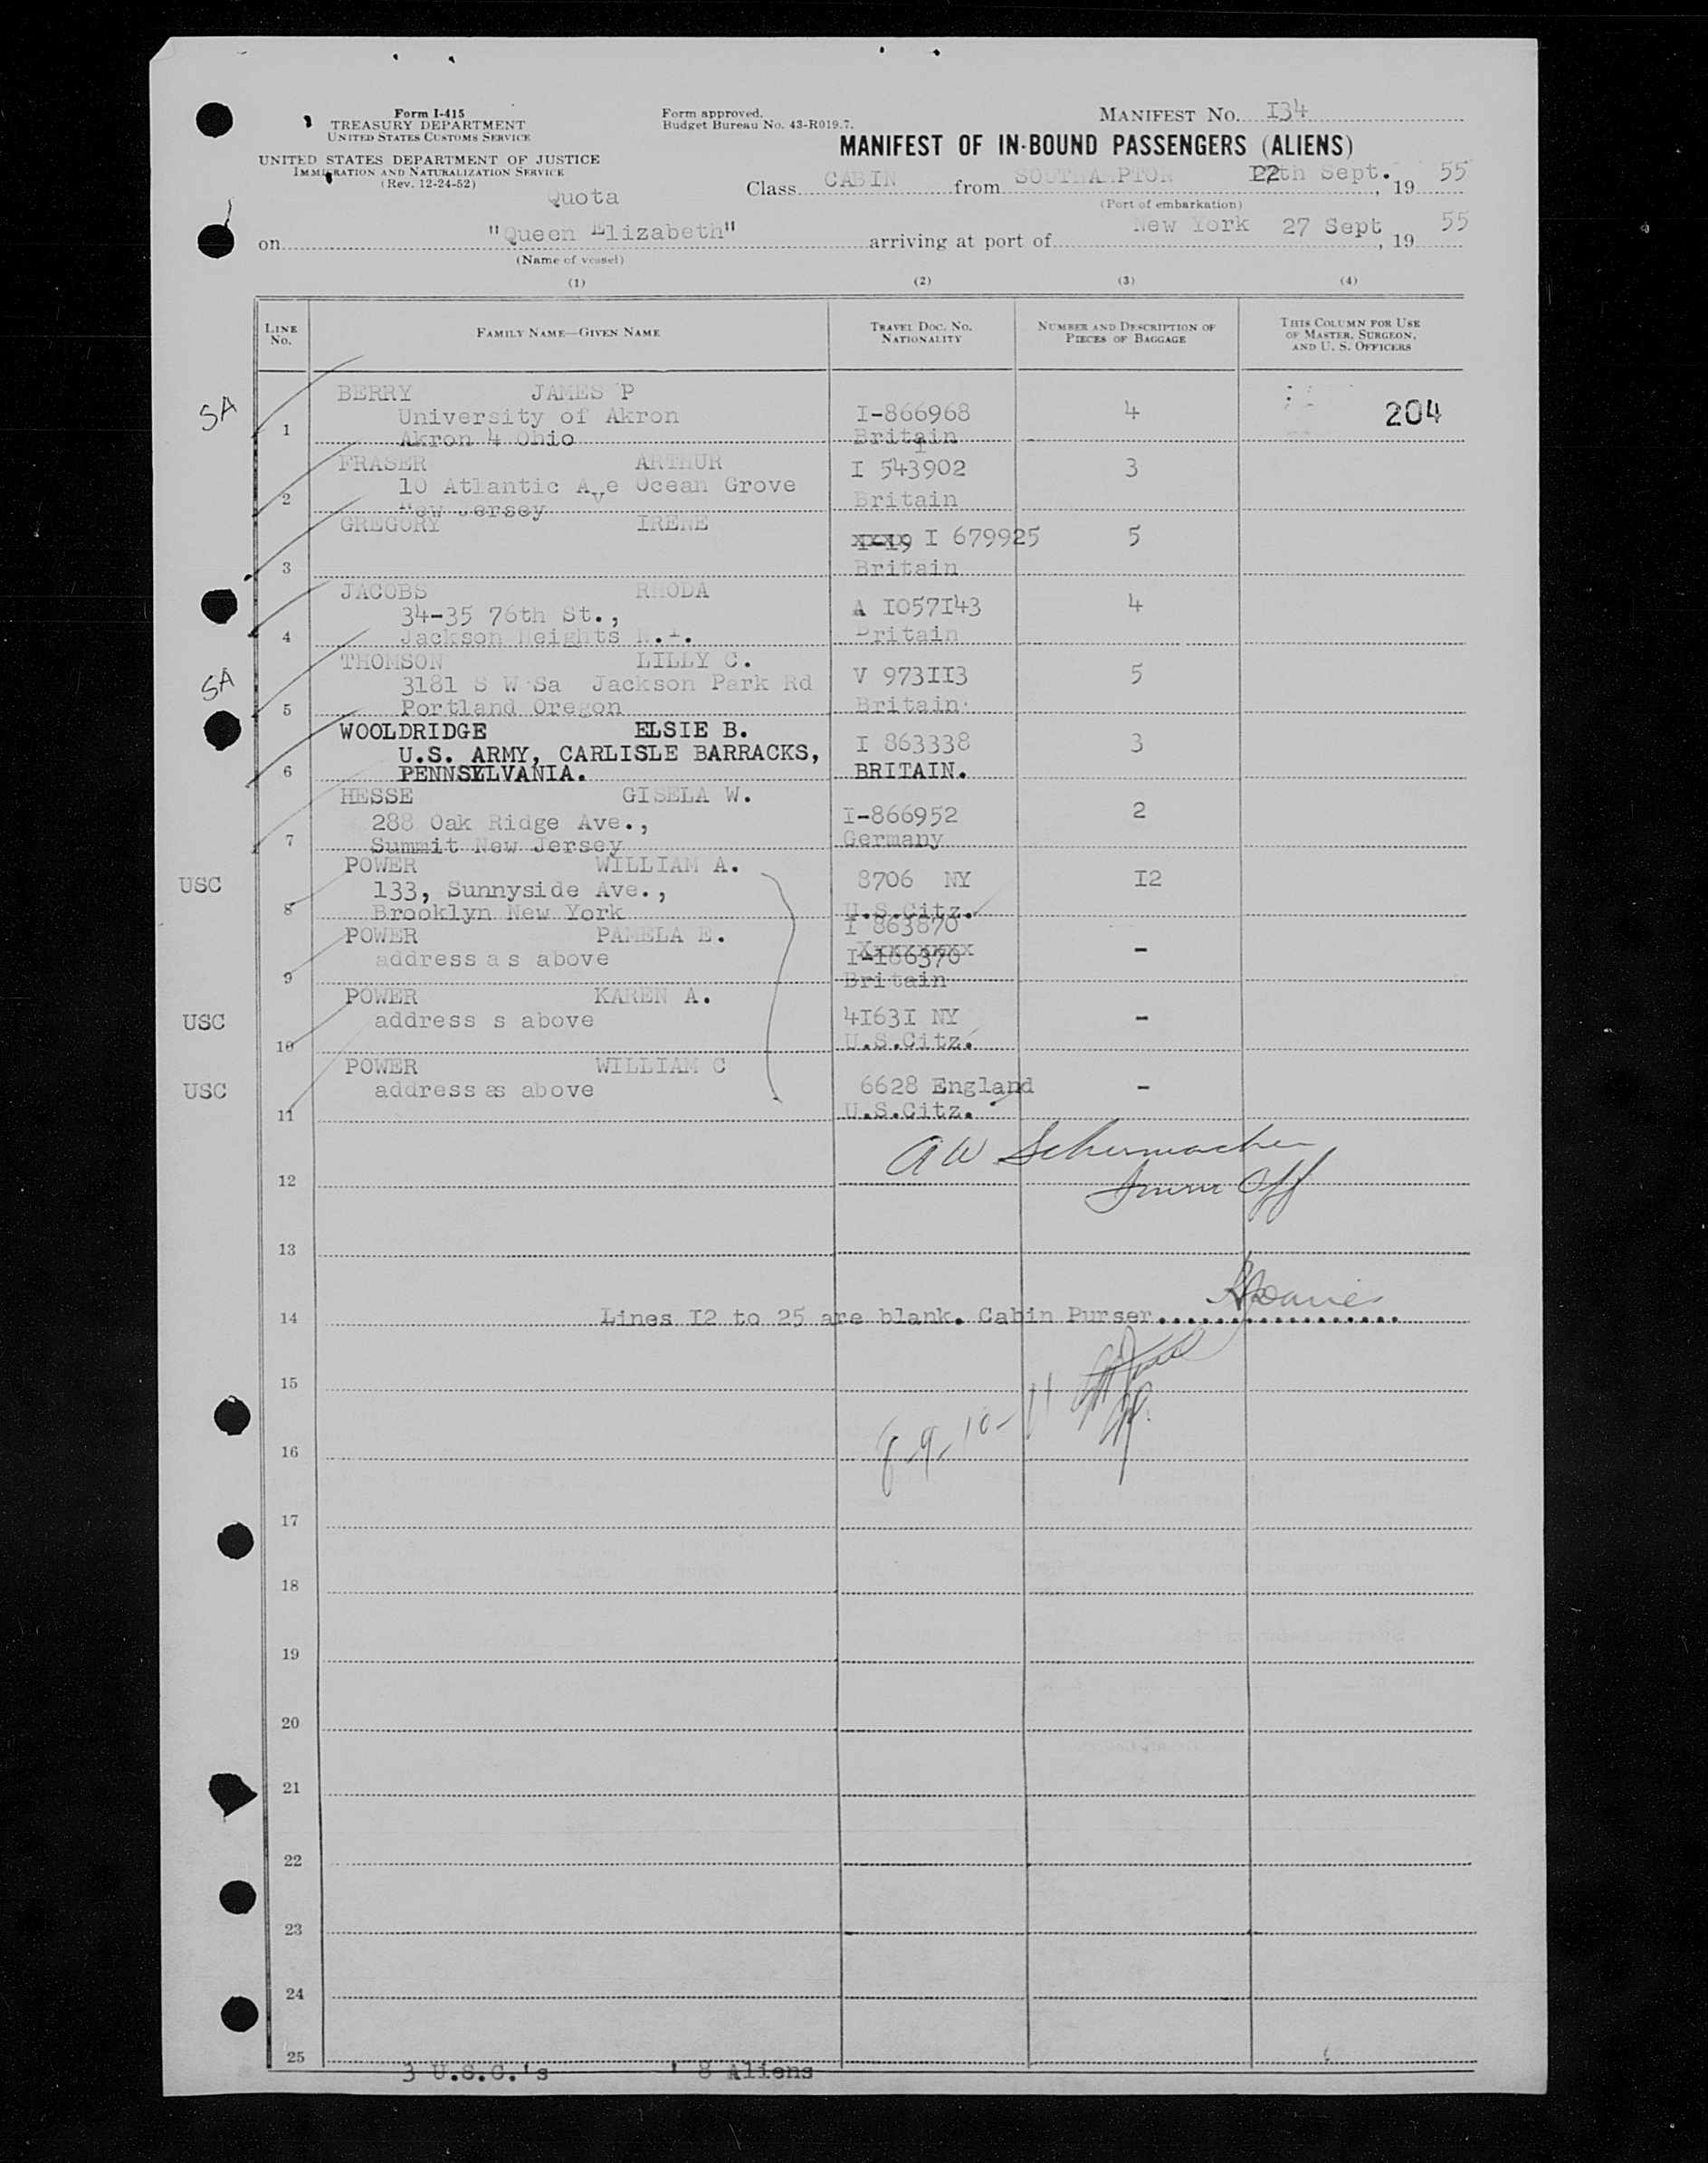 Form I-415
TREASURY DEPARTMENT
UNITED STATES CUSTOMS SERVICE
UNITED STATES DEPARTMENT OF JUSTICE
IMMIGRATION AND NATURALIZATION SERVICE
(Rev. 12-24-52)
Form approved.
Budget Bureau No. 43-R019.7.
MANIFEST NO. I34
MANIFEST OF IN-BOUND PASSENGERS (ALIENS)
Quota
Class CABIN from SOUTHAMPTON 22th Sept., 19 55
(Port of embarkation)
on "Queen Elizabeth" arriving at port of New York 27 Sept, 19 55
(Name of vessel)
(1) (2) (3) (4)
LINE NO. FAMILY NAME—GIVEN NAME TRAVEL DOC. NO. NATIONALITY NUMBER AND DESCRIPTION OF PIECES OF BAGGAGE THIS COLUMN FOR USE OF MASTER, SURGEON, AND U. S. OFFICERS
SA
BERRY JAMES P
University of Akron I-866968 4 204
1 Akron 4 Ohio Britain
FRASER ARTHUR I 543902 3
10 Atlantic Ave Ocean Grove
2 New Jersey Britain
GREGORY IRENE
I-19 I 679925 5
3 Britain
JACOBS RHODA
34-35 76th St., A I057I43 4
4 Jackson Heights N.Y. Britain
SA
THOMSON LILLY C.
3181 S W Sa Jackson Park Rd V 973II3 5
5 Portland Oregon Britain
WOOLDRIDGE ELSIE B.
U.S. ARMY, CARLISLE BARRACKS, I 863338 3
6 PENNSELVANIA. BRITAIN.
HESSE GISELA W.
288 Oak Ridge Ave., I-866952 2
7 Summit New Jersey Germany
USC
POWER WILLIAM A.
133, Sunnyside Ave., 8706 NY I2
8 Brooklyn New York U.S.Citz.
POWER PAMELA E. I 863870
address a s above I-186370 -
9 Britain
USC
POWER KAREN A.
address s above 4I63I NY -
10 U.S.Citz.
USC
POWER WILLIAM C
address as above 6628 England -
11 U.S.Citz.
A W Schumacher
12 Imm Off
13
14 Lines I2 to 25 are blank. Cabin Purser
15
8-9-10-11
16
17
18
19
20
21
22
23
24
25
3 U.S.C.'s 8 Aliens